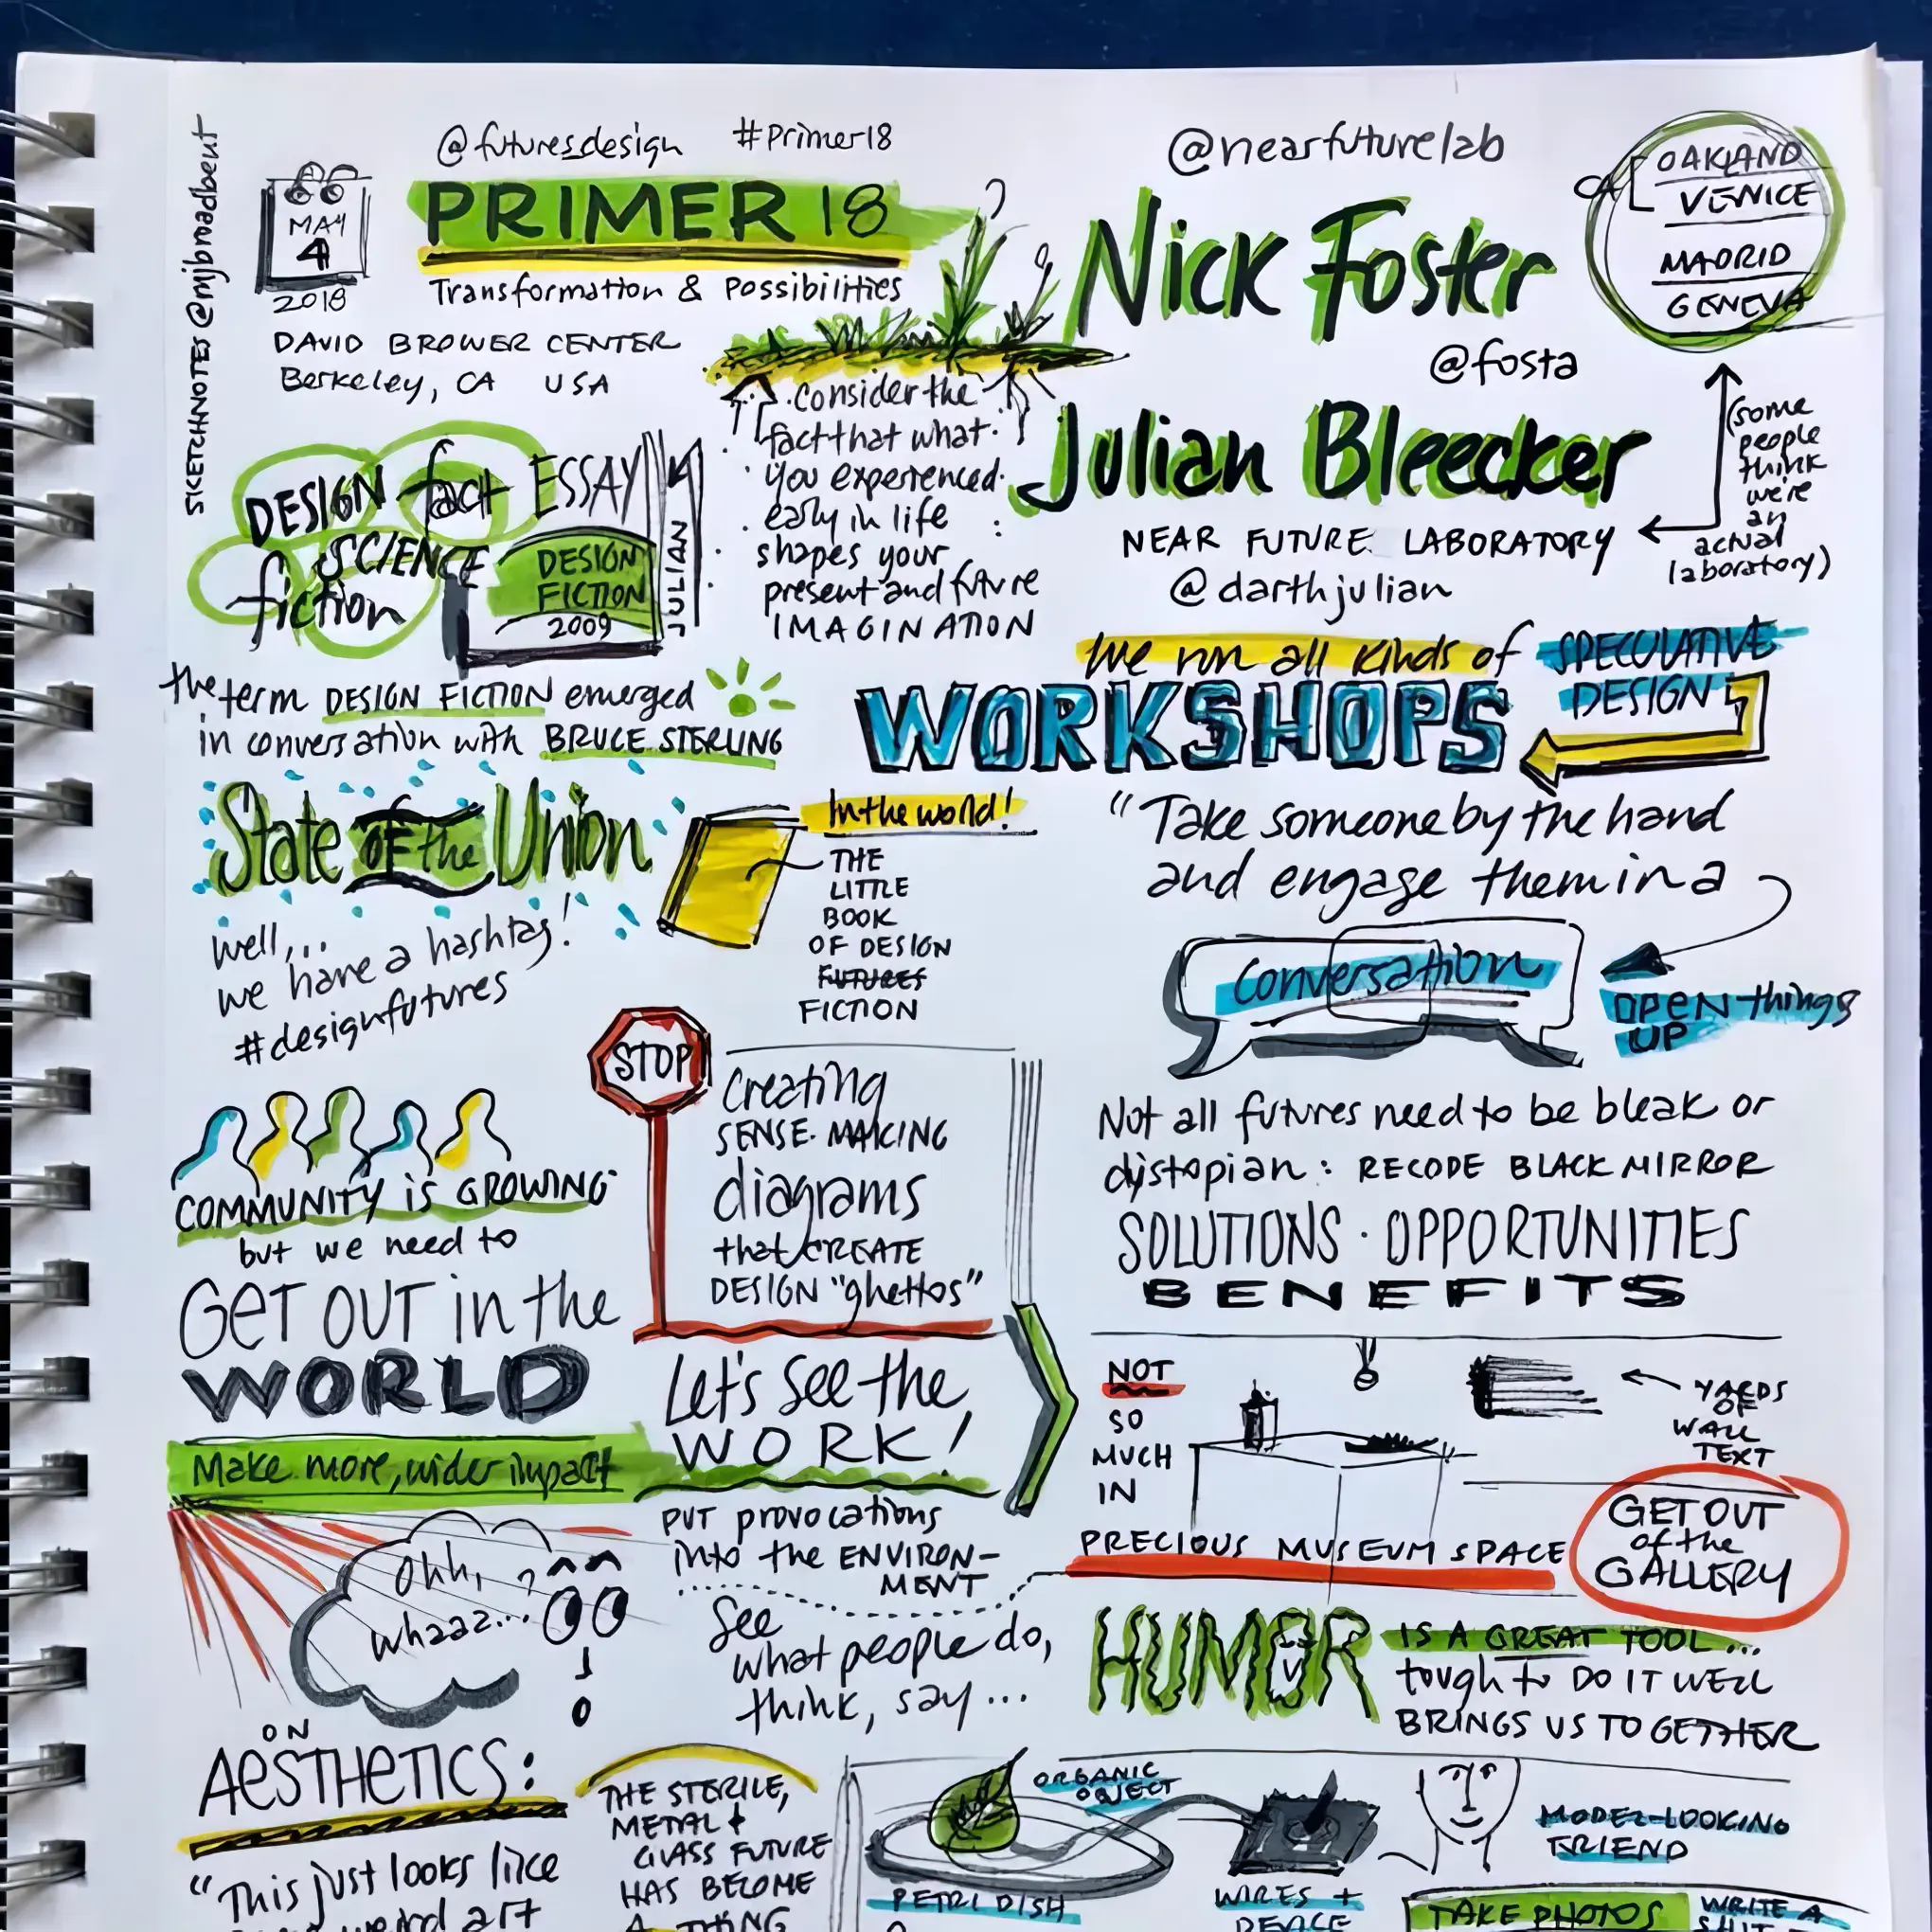 SKETCHNOTES @mjbroadbent
@futuresdesign #primer18
MAY
4
2018
PRIMER 18
Transformation & Possibilities
DAVID BROWER CENTER
Berkeley, CA USA
@nearfuturelab
Nick Foster
@fosta
Julian Bleecker
NEAR FUTURE LABORATORY
@darthjulian
CA
OAKLAND
VENICE
MADRID
GENEVA
(some
people
think
we're
an
actual
laboratory)
Consider the
fact that what
you experienced
early in life
shapes your
present and future
IMAGINATION
DESIGN fact ESSAY
SCIENCE
fiction
DESIGN
FICTION
2009
JULIAN
the term DESIGN FICTION emerged
in conversation with BRUCE STERLING
State OF the Union
well,...
we have a hashtag!
#designfutures
In the world!
THE
LITTLE
BOOK
OF DESIGN
FUTURES
FICTION
We run all kinds of SPECULATIVE
DESIGN
WORKSHOPS
"Take someone by the hand
and engage them in a
Conversation
OPEN things
UP
Not all futures need to be bleak or
dystopian: RECODE BLACK MIRROR
SOLUTIONS · OPPORTUNITIES
BENEFITS
COMMUNITY is GROWING
but we need to
GET OUT in the
WORLD
Make more, wider impact
STOP
Creating
SENSE-MAKING
diagrams
that CREATE
DESIGN "ghettos"
Let's see the
WORK!
PUT provocations
into the ENVIRON-
MENT
See
what people do,
think, say...
Ohh,
whaaa...?
NOT
SO
MUCH
IN
PRECIOUS MUSEUM SPACE
YARDS
OF
WALL
TEXT
GET OUT
of the
GALLERY
HUMOR IS A GREAT TOOL...
tough to DO IT WELL
BRINGS US TOGETHER
ON
AESTHETICS:
"This just looks like
weird art
THE STERILE,
METAL &
GLASS FUTURE
HAS BECOME
A THING
ORGANIC
OBJECT
PETRI DISH
WIRES +
DEVICE
MODEL-LOOKING
FRIEND
TAKE PHOTOS
WRITE A